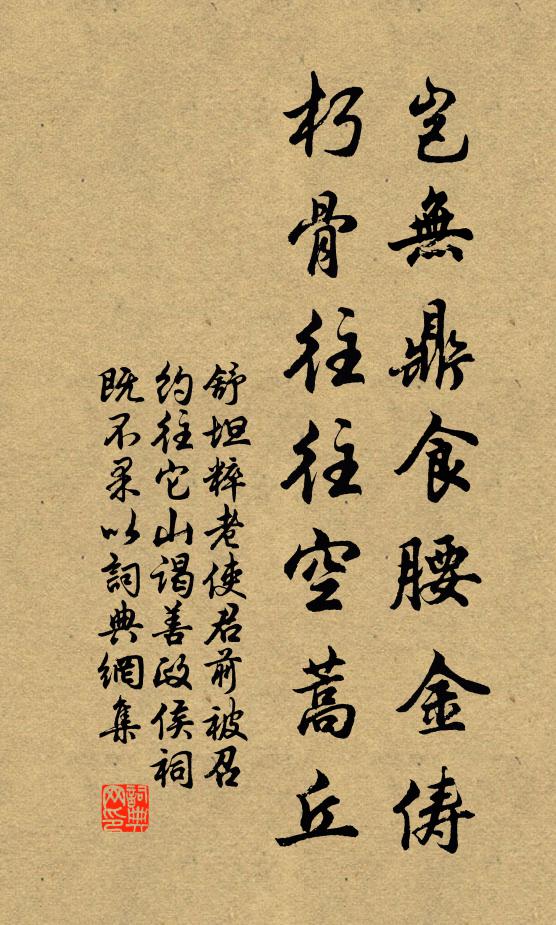 岂無鼎食腰金儔
朽骨往往空蒿丘
舒坦粹老使君前被召
約往它山謁善政侯祠
既不果以詞典網集
詞典网印